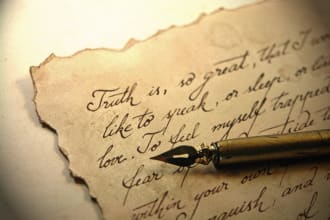 Truth is, so great, that I wo
like to speak, or sleep, or li
love. To feel myself trapped
fear of side to
within your own
nguish, and